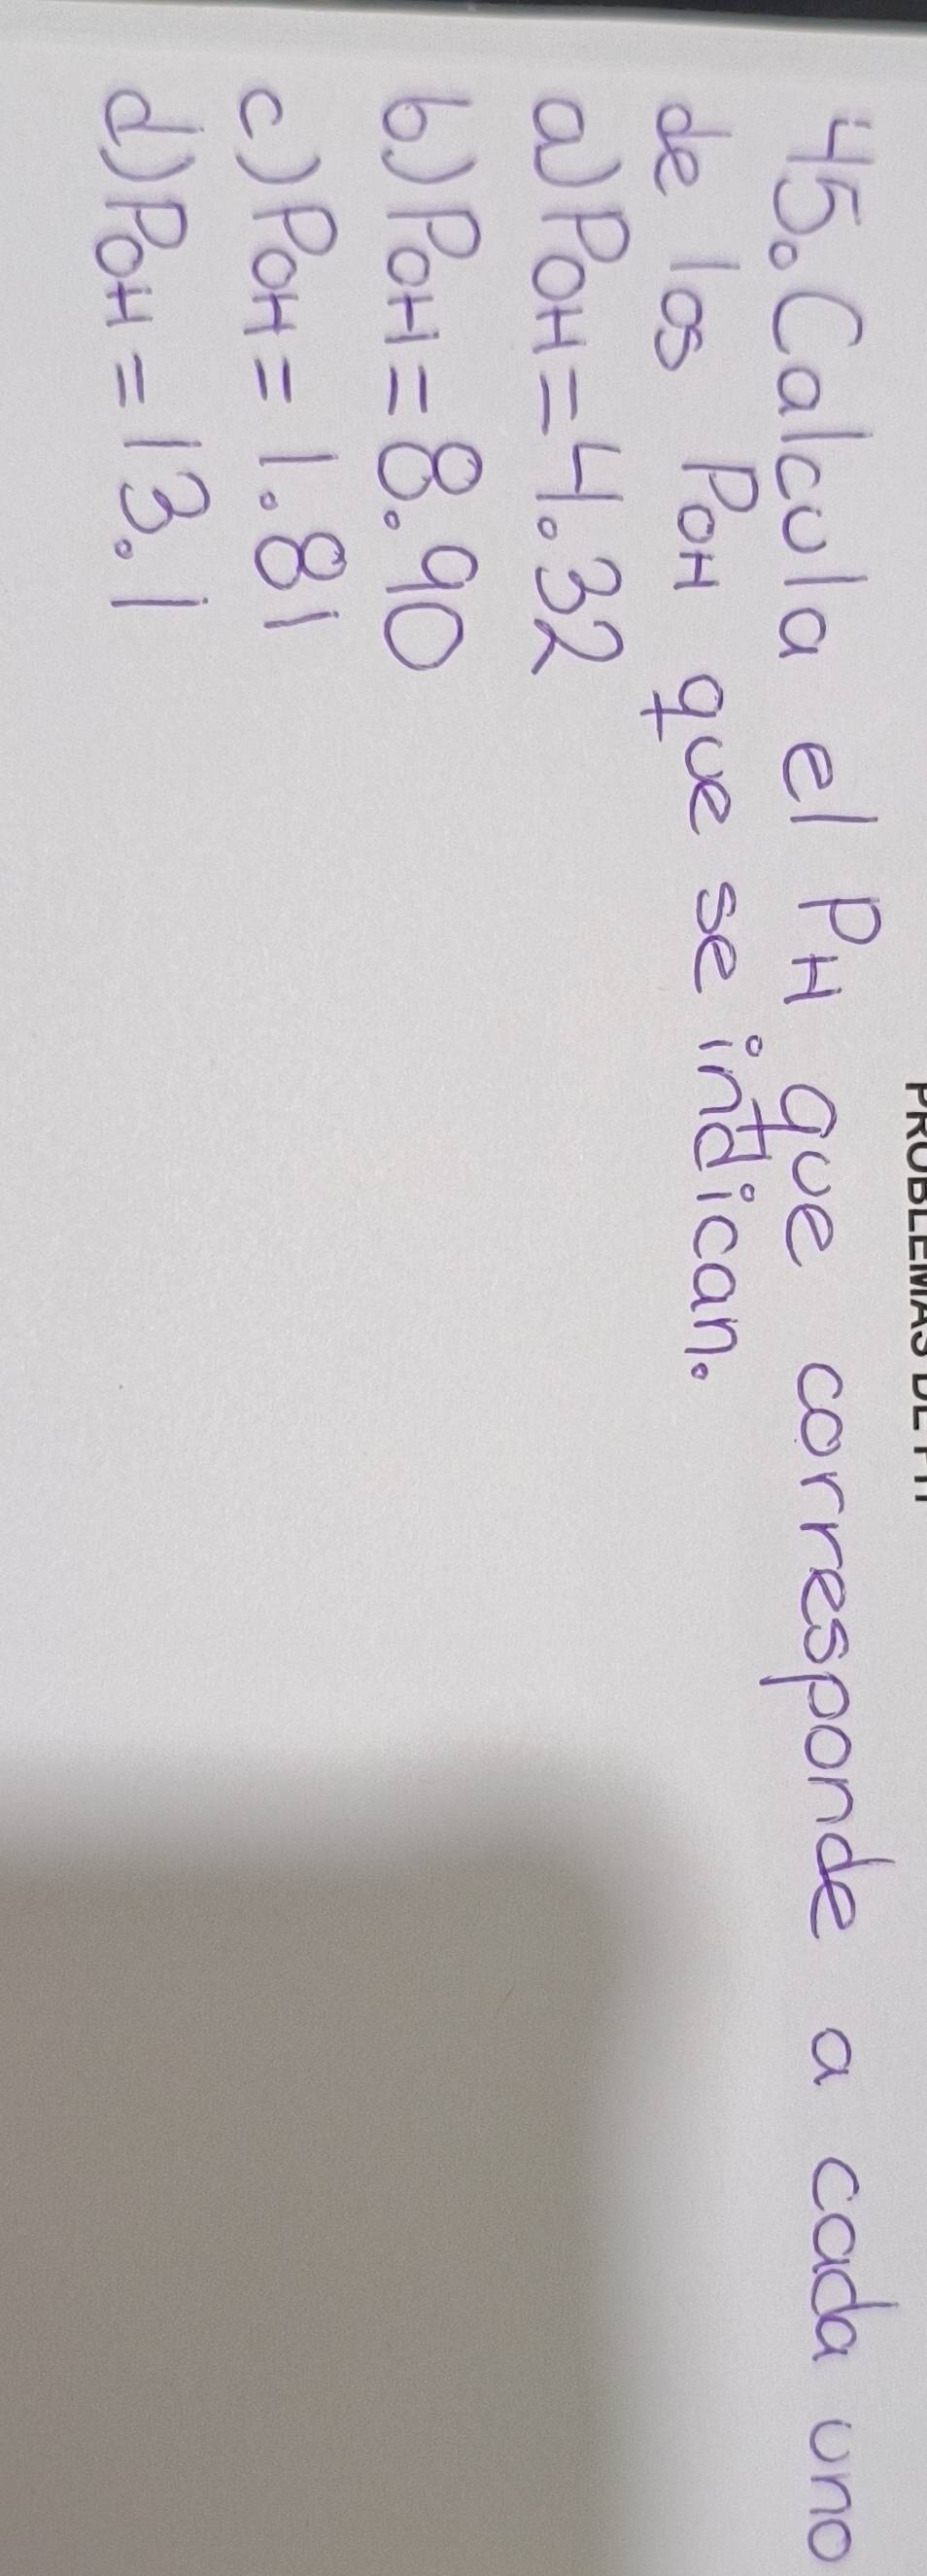 PROBLEMAS DE PH
45. Calcula el PH que corresponde a cada uno
de los POH que se indican.
a) POH = 4.32
b) POH = 8.90
c) POH = 1.81
d) POH = 13.1